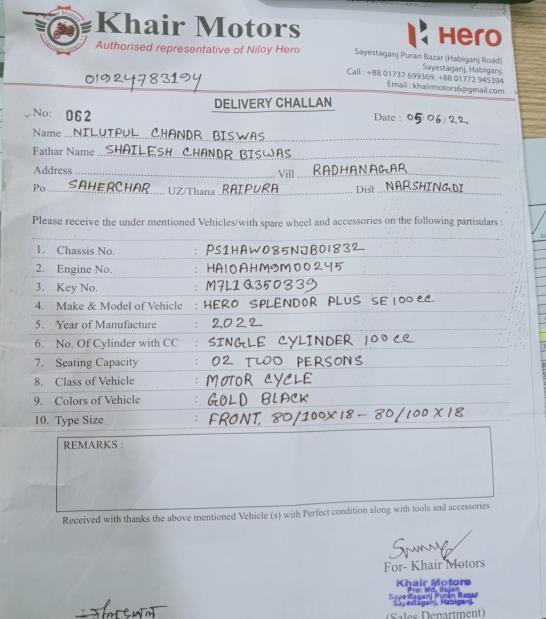 Khair Motors
Authorised representative of Niloy Hero
Hero
Sayestaganj Puran Bazar (Habiganj Road)
Sayestaganj, Habiganj.
Call : +88 01737 699369, +88 01772 945394
Email : khairmotors6@gmail.com
01924783194
DELIVERY CHALLAN
No: 062 Date : 05/06/22
Name NILUTPUL CHANDR BISWAS
Fathar Name SHAILESH CHANDR BISWAS
Address Vill RADHANAGAR
Po SAHERCHAR UZ/Thana RAIPURA Dist NARSHINGDI
Please receive the under mentioned Vehicles/with spare wheel and accessories on the following partisulars :
1. Chassis No. : PS1HAW085NJB01832
2. Engine No. : HA10AHM9M00245
3. Key No. : M7L1Q350339
4. Make & Model of Vehicle : HERO SPLENDOR PLUS SE 100cc
5. Year of Manufacture : 2022
6. No. Of Cylinder with CC : SINGLE CYLINDER 100cc
7. Seating Capacity : 02 TWO PERSONS
8. Class of Vehicle : MOTOR CYCLE
9. Colors of Vehicle : GOLD BLACK
10. Type Size : FRONT, 80/100X18 - 80/100X18
REMARKS :
Received with thanks the above mentioned Vehicle (s) with Perfect condition along with tools and accessories
For- Khair Motors
Khair Motors
Pro: Md. Sujan
Sayestaganj Puran Bazar
Sayestaganj, Habiganj.
(Sales Department)